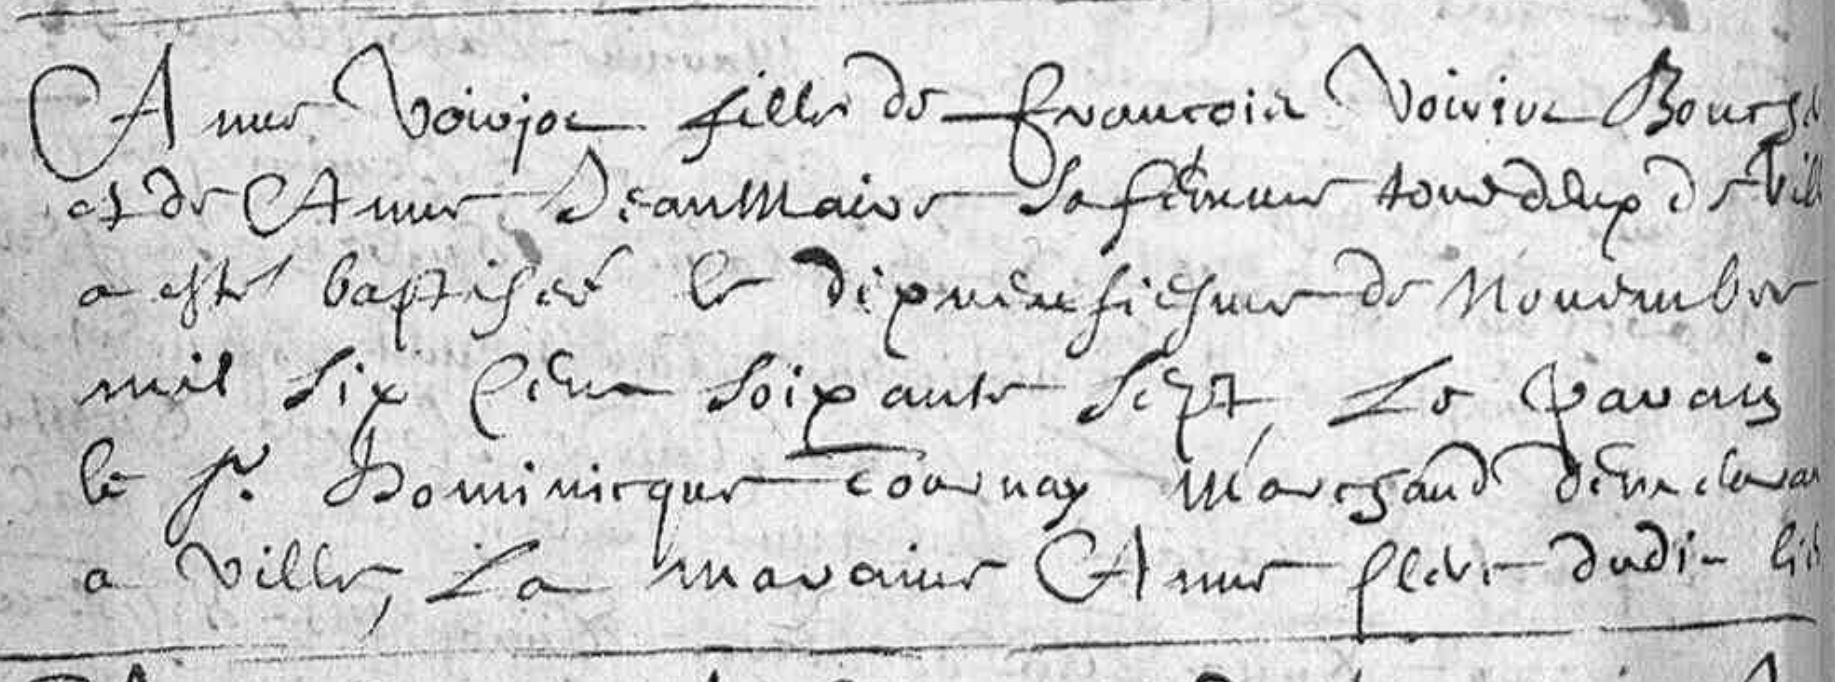 Anne Voivjoe fille de Francois Voirive Bourg
et de Anne JeanMaire sa fēmme tous deux de Vill
a esté baptisée le dixneufiesme de Nouembre
mil six Cens soixante sept, Le Parain
le Sr. Dominicque Tournay Marchand demeura
a Ville, La maraine Anne dudit